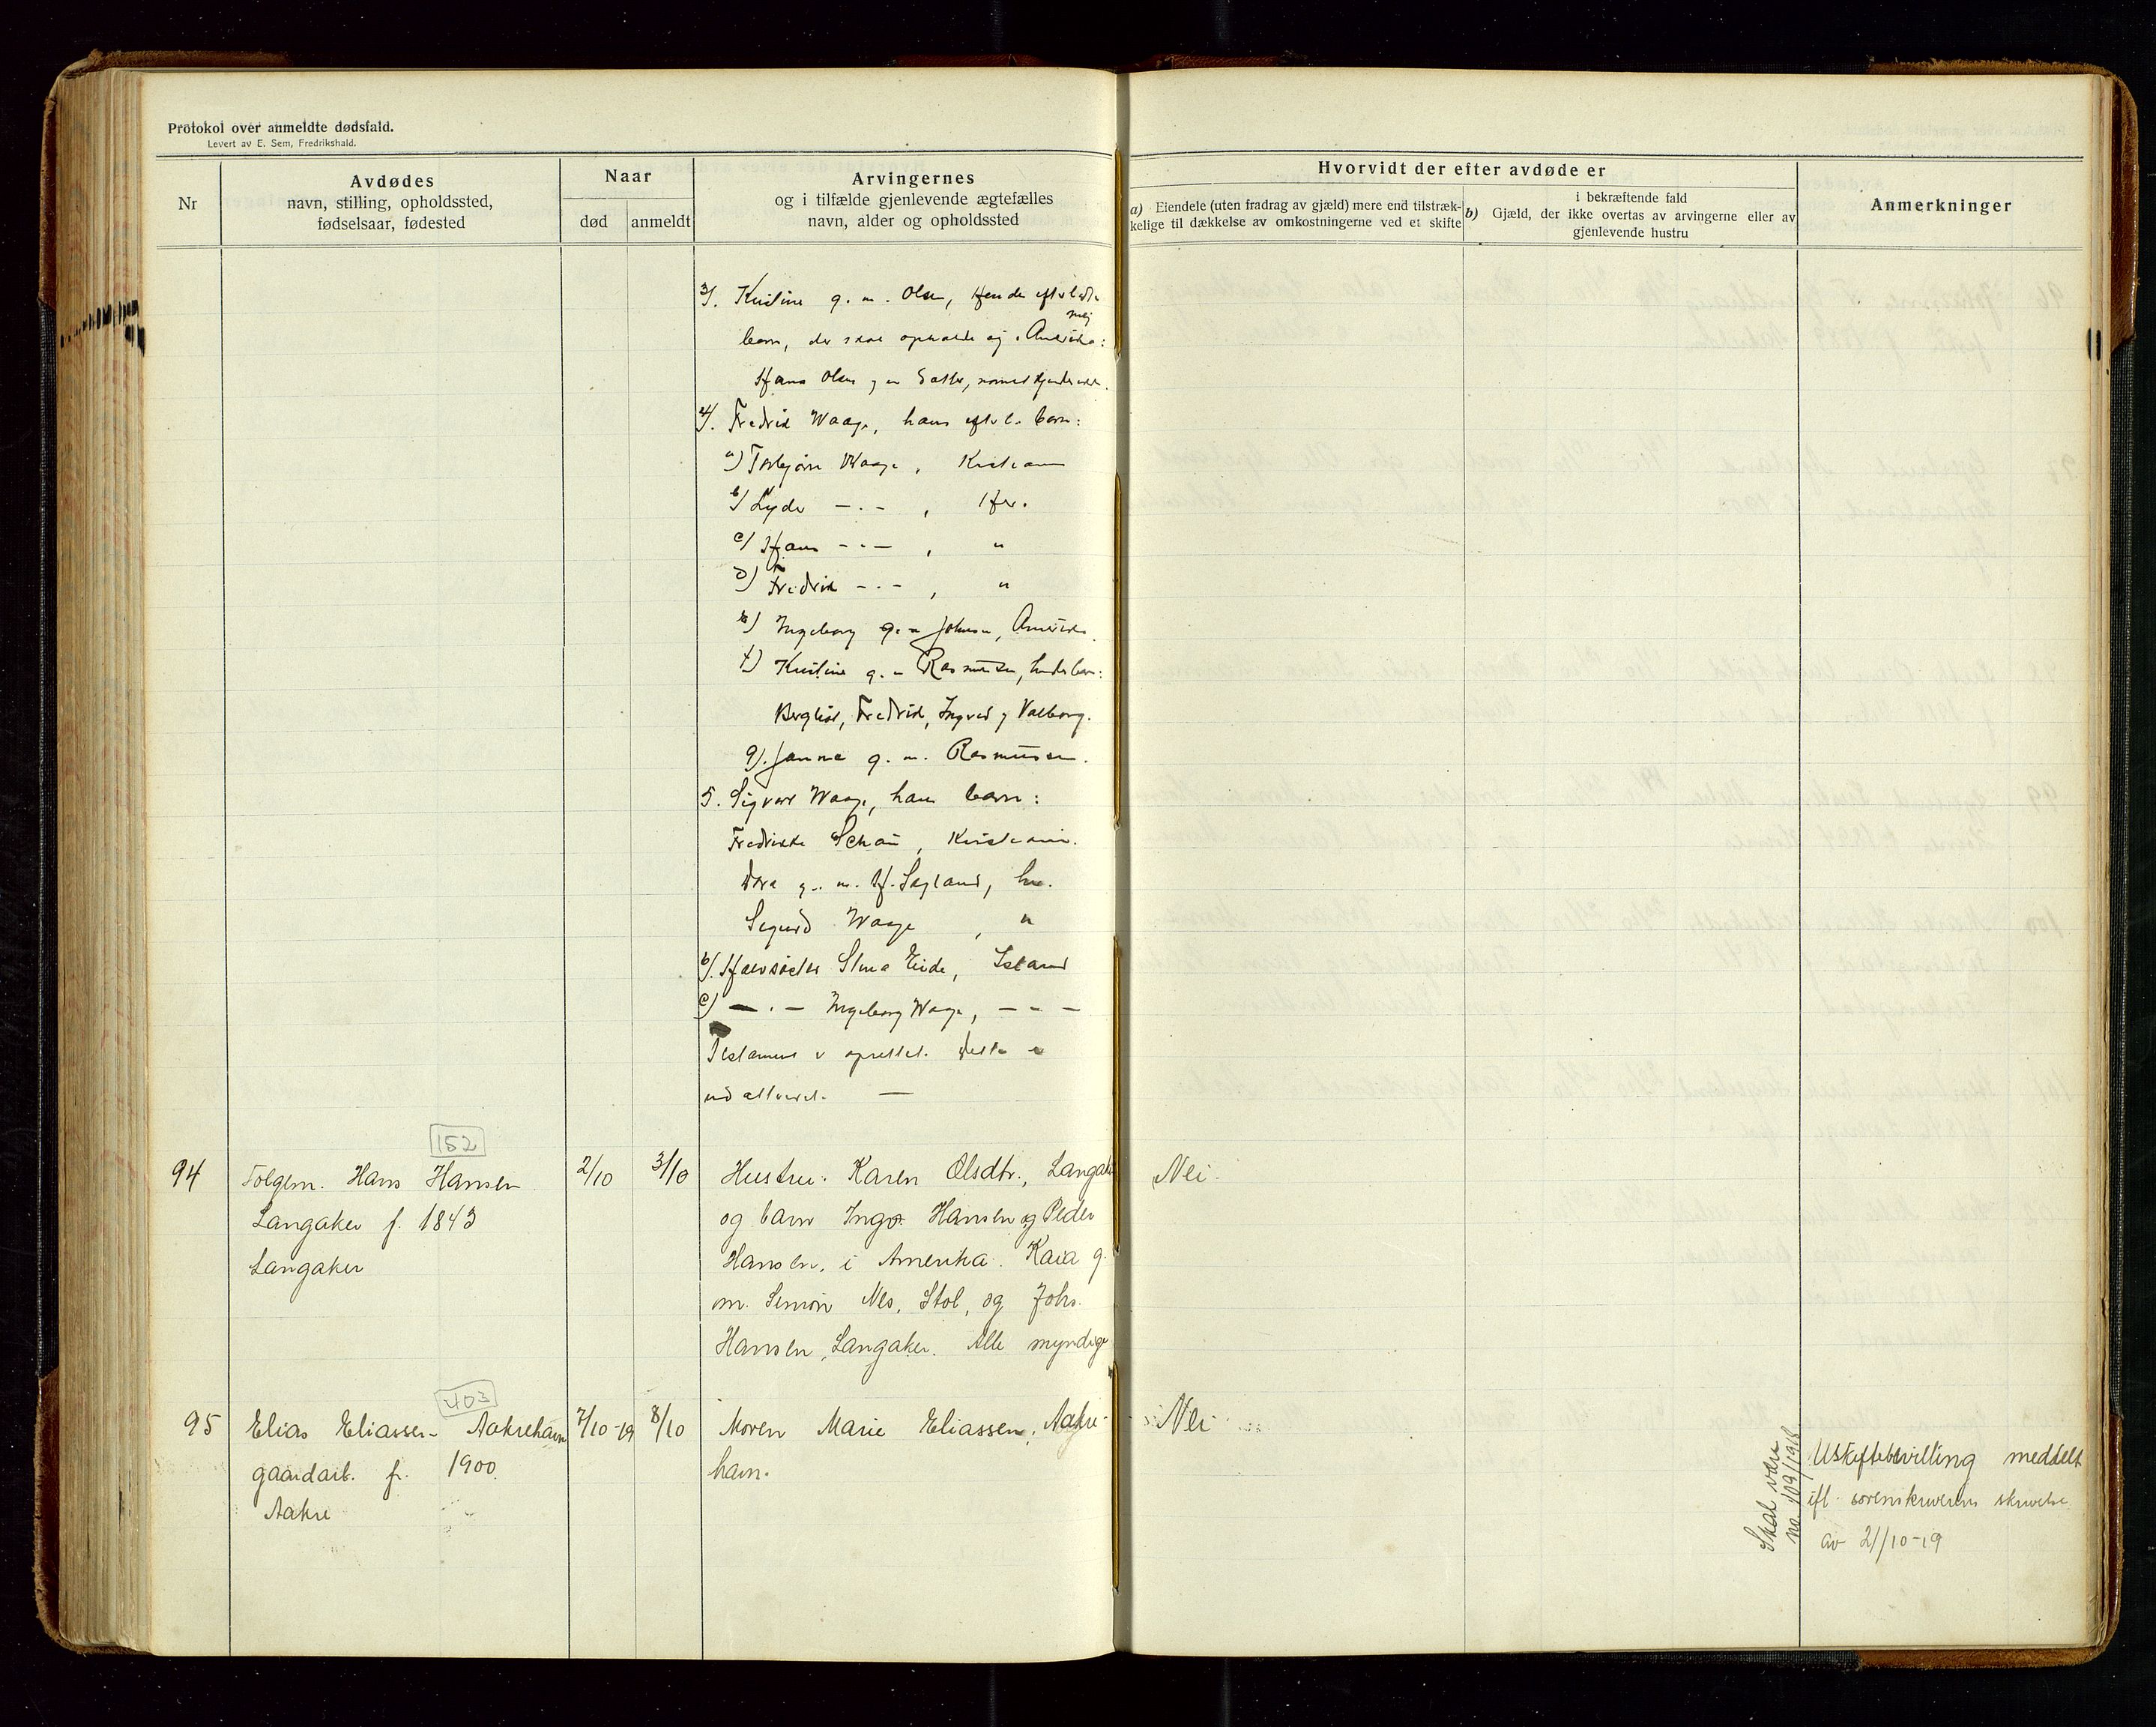 Protokol over anmeldte dødsfald.
Levert av E. Sem, Fredrikshald.
Nr
Avdødes
navn, stilling, opholdssted,
fødselsaar, fødested
Naar
død
anmeldt
Arvingernes
og i tilfælde gjenlevende ægtefælles
navn, alder og opholdssted
Hvorvidt der efter avdøde er
a) Eiendele (uten fradrag av gjæld) mere end tilstræk-
kelige til dækkelse av omkostningerne ved et skifte
i bekræftende fald
b) Gjæld, der ikke overtas av arvingerne eller av
gjenlevende hustru
Anmerkninger
3). Kristine g. m. Olsen, hendes efterladte
barn, der skal opholde sig i Amerika:
Hans Olsen og en Datter,
4). Fredrik Waage, hans efterl. barn:
a) Torbjørn Waage, Kristiania
b) Lyder -.- , Her.
c) Hans -.- , "
d) Fredrik -.- , "
e) Ingeborg g. m. Johnsen, Amerika.
f) Kristine g. m. Rasmussen, hendes barn:
Bergliot, Fredrik, Ingrid og Valborg.
g). Janna g. m. Rasmussen.
5. Sigvart Waage, hans barn:
Fredrikke Schau, Kristiania.
Dora g. m. H. Sagland, her.
Sigurd Waage , "
b). Halvsøster Stina Eide, Island
c) -.- Ingeborg Waage, -.-
Testament er oprettet. Dette er
152
94
Folgem. Hans Hansen
Langaker f. 1843
Langaker
2/10
3/10
Hustru: Karen Olsdtr., Langaker
og barn Inga Hansen og Peder
Hansen, i Amerika. Kaia g.
m. Simon Nes, Stol, og Johs.
Hansen, Langaker. Alle myndige
Nei.
403
95
Elias Eliassen Aakrehavn
gaardarb. f. 1900.
Aakre
7/10-19
8/10
Moren Marie Eliassen, Aakre-
havn.
Nei
Skal være
no 109/1918
Uskiftebevilling meddelt
ifl. sorenskriverens skrivelse
av 21/10-19